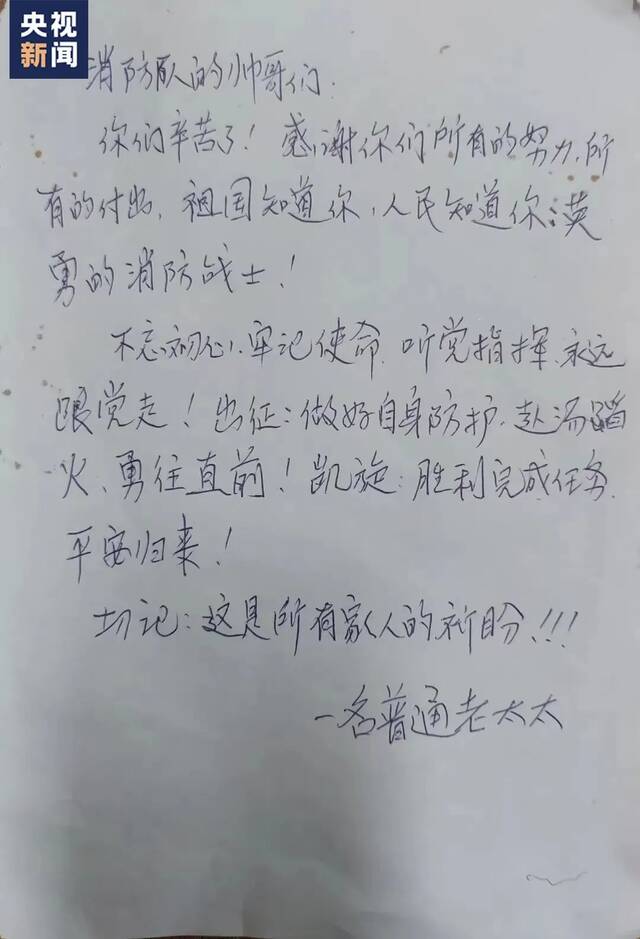 央视
新闻
消防队的帅哥们:
你们辛苦了！感谢你们所有的努力,所
有的付出,祖国知道你,人民知道你:英
勇的消防战士！
不忘初心、牢记使命,听党指挥、永远
跟党走！出征:做好自身防护,赴汤蹈
火、勇往直前！凯旋:胜利完成任务,
平安归来！
切记:这是所有家人的祈盼!!!
一名普通老太太